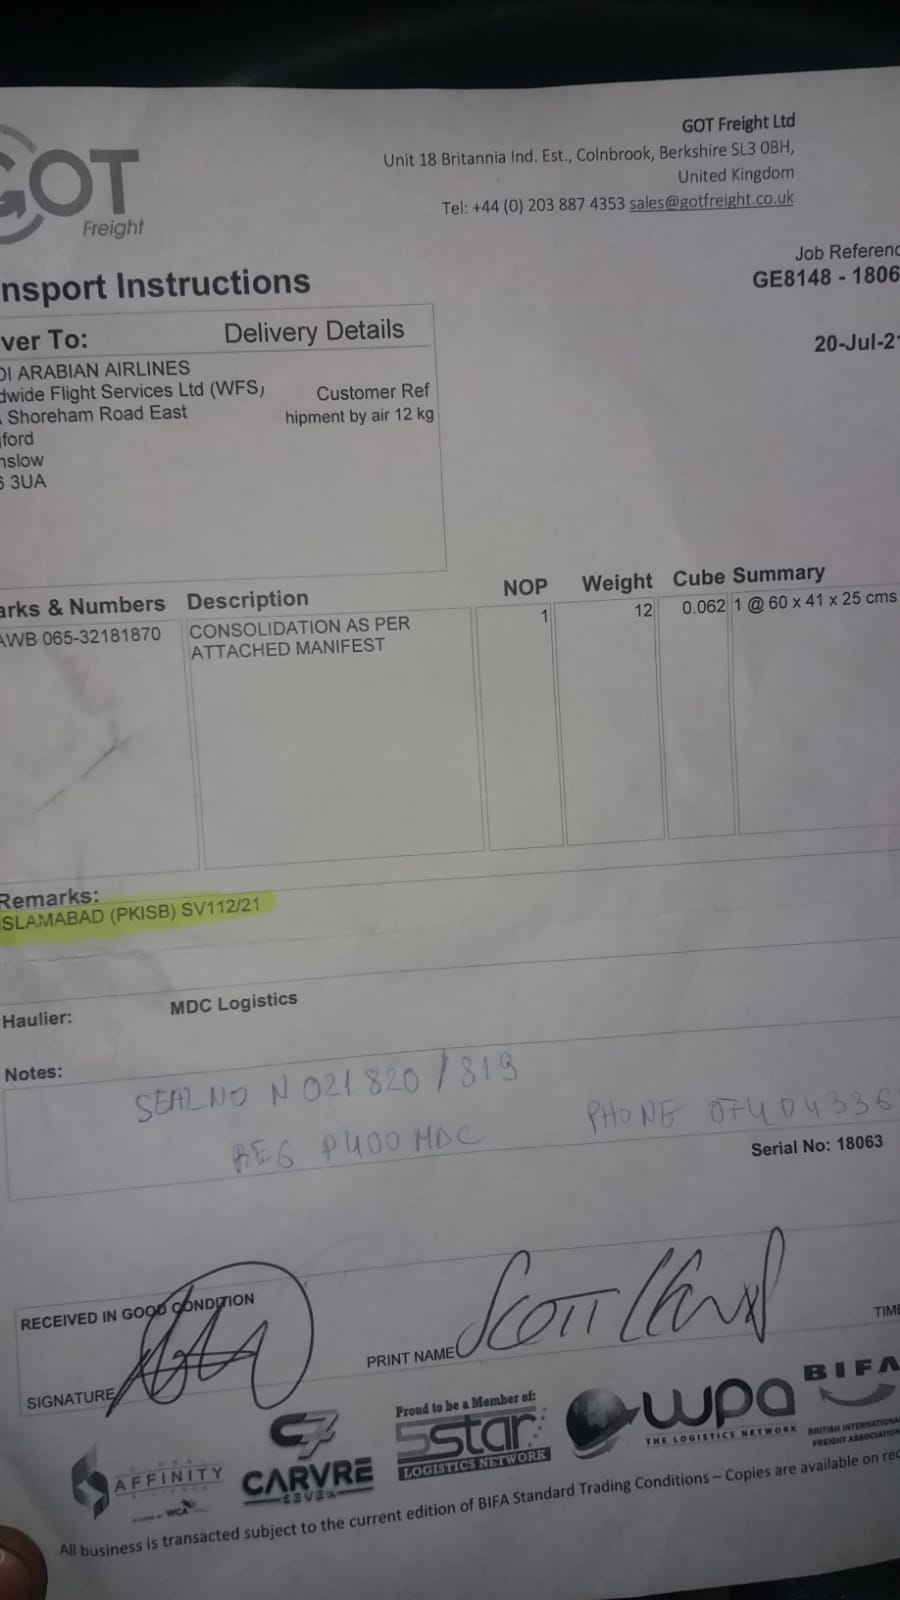 GOT
Freight
GOT Freight Ltd
Unit 18 Britannia Ind. Est., Colnbrook, Berkshire SL3 0BH,
United Kingdom
Tel: +44 (0) 203 887 4353 sales@gotfreight.co.uk
Job Referenc
GE8148 - 1806
20-Jul-21
nsport Instructions
ver To:
Delivery Details
DI ARABIAN AIRLINES
dwide Flight Services Ltd (WFS)
Shoreham Road East
ford
nslow
3UA
Customer Ref
hipment by air 12 kg
arks & Numbers Description NOP Weight Cube Summary
AWB 065-32181870 CONSOLIDATION AS PER 1 12 0.062 1 @ 60 x 41 x 25 cms
ATTACHED MANIFEST
Remarks:
SLAMABAD (PKISB) SV112/21
Haulier: MDC Logistics
Notes:
SEAL NO N 021820/819
REG P400 MDC
PHONE 07404336
Serial No: 18063
RECEIVED IN GOOD CONDITION
SIGNATURE
PRINT NAME SCOTT
TIME
AFFINITY
WCA
C7
CARVRE
SEVEN
Proud to be a Member of:
5Star
LOGISTICS NETWORK
wpa
THE LOGISTICS NETWORK
BIFA
BRITISH INTERNATIONAL
FREIGHT ASSOCIATION
All business is transacted subject to the current edition of BIFA Standard Trading Conditions – Copies are available on req